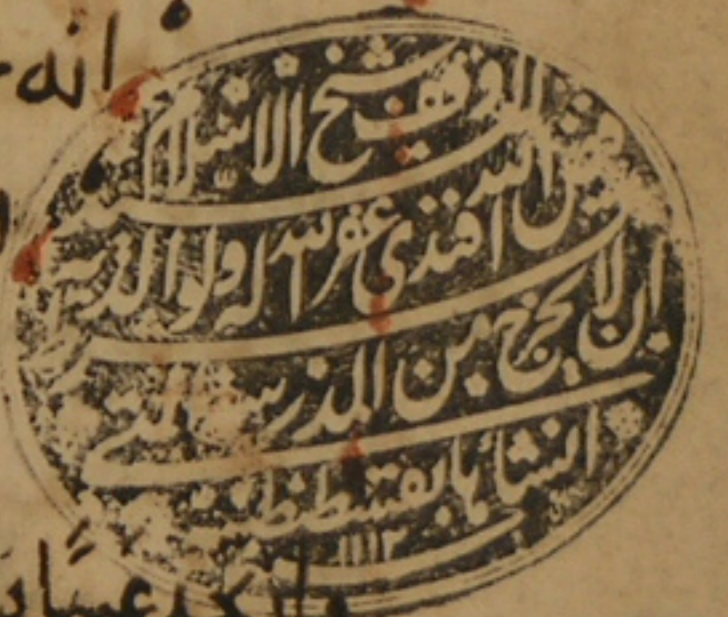 انه
وقف شيخ الاسلام
فيض الله افندى غفر الله له ولوالديه
بشرط ان لا يخرج من المدرسة التى
انشأها بقسطنطينية
١١١٣